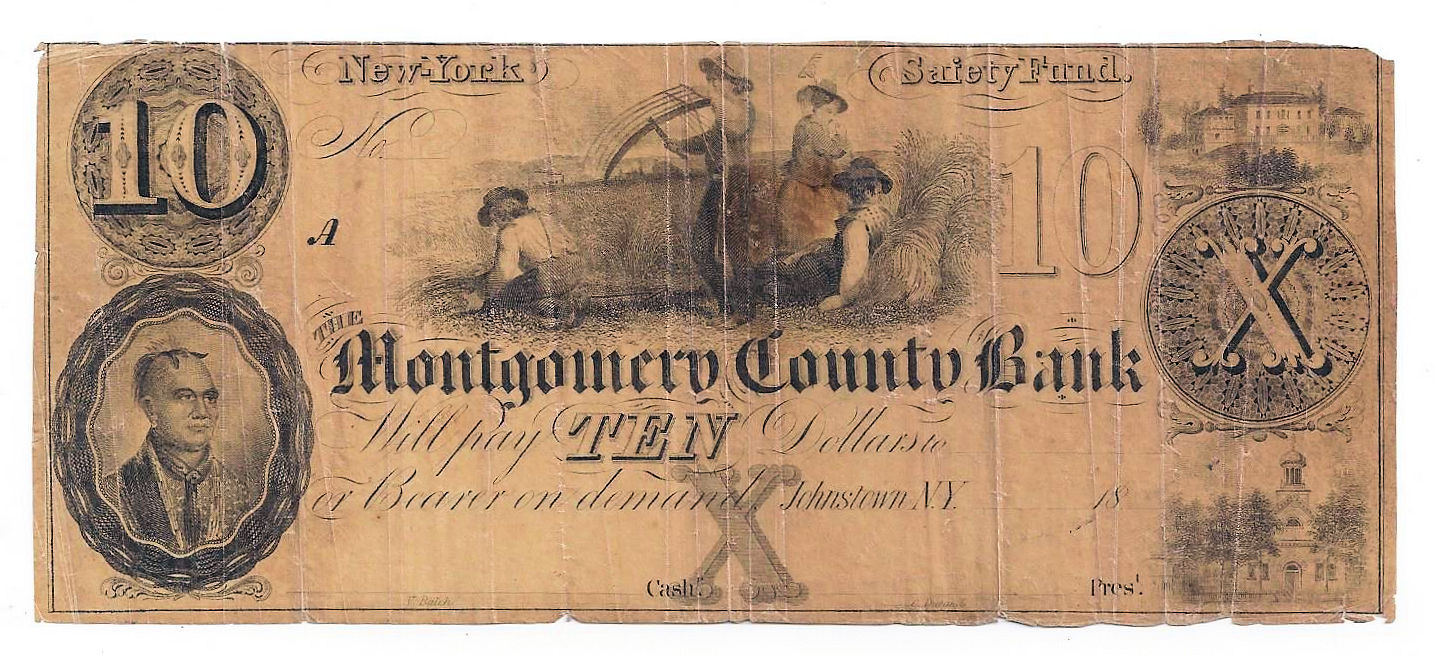 New-York
Safety Fund.
10
No.
10
A
X
THE
Montgomery County Bank
Will pay TEN Dollars to
or Bearer on demand, Johnstown N.Y. 18
X
Cashr.
Prest.
V. Balch